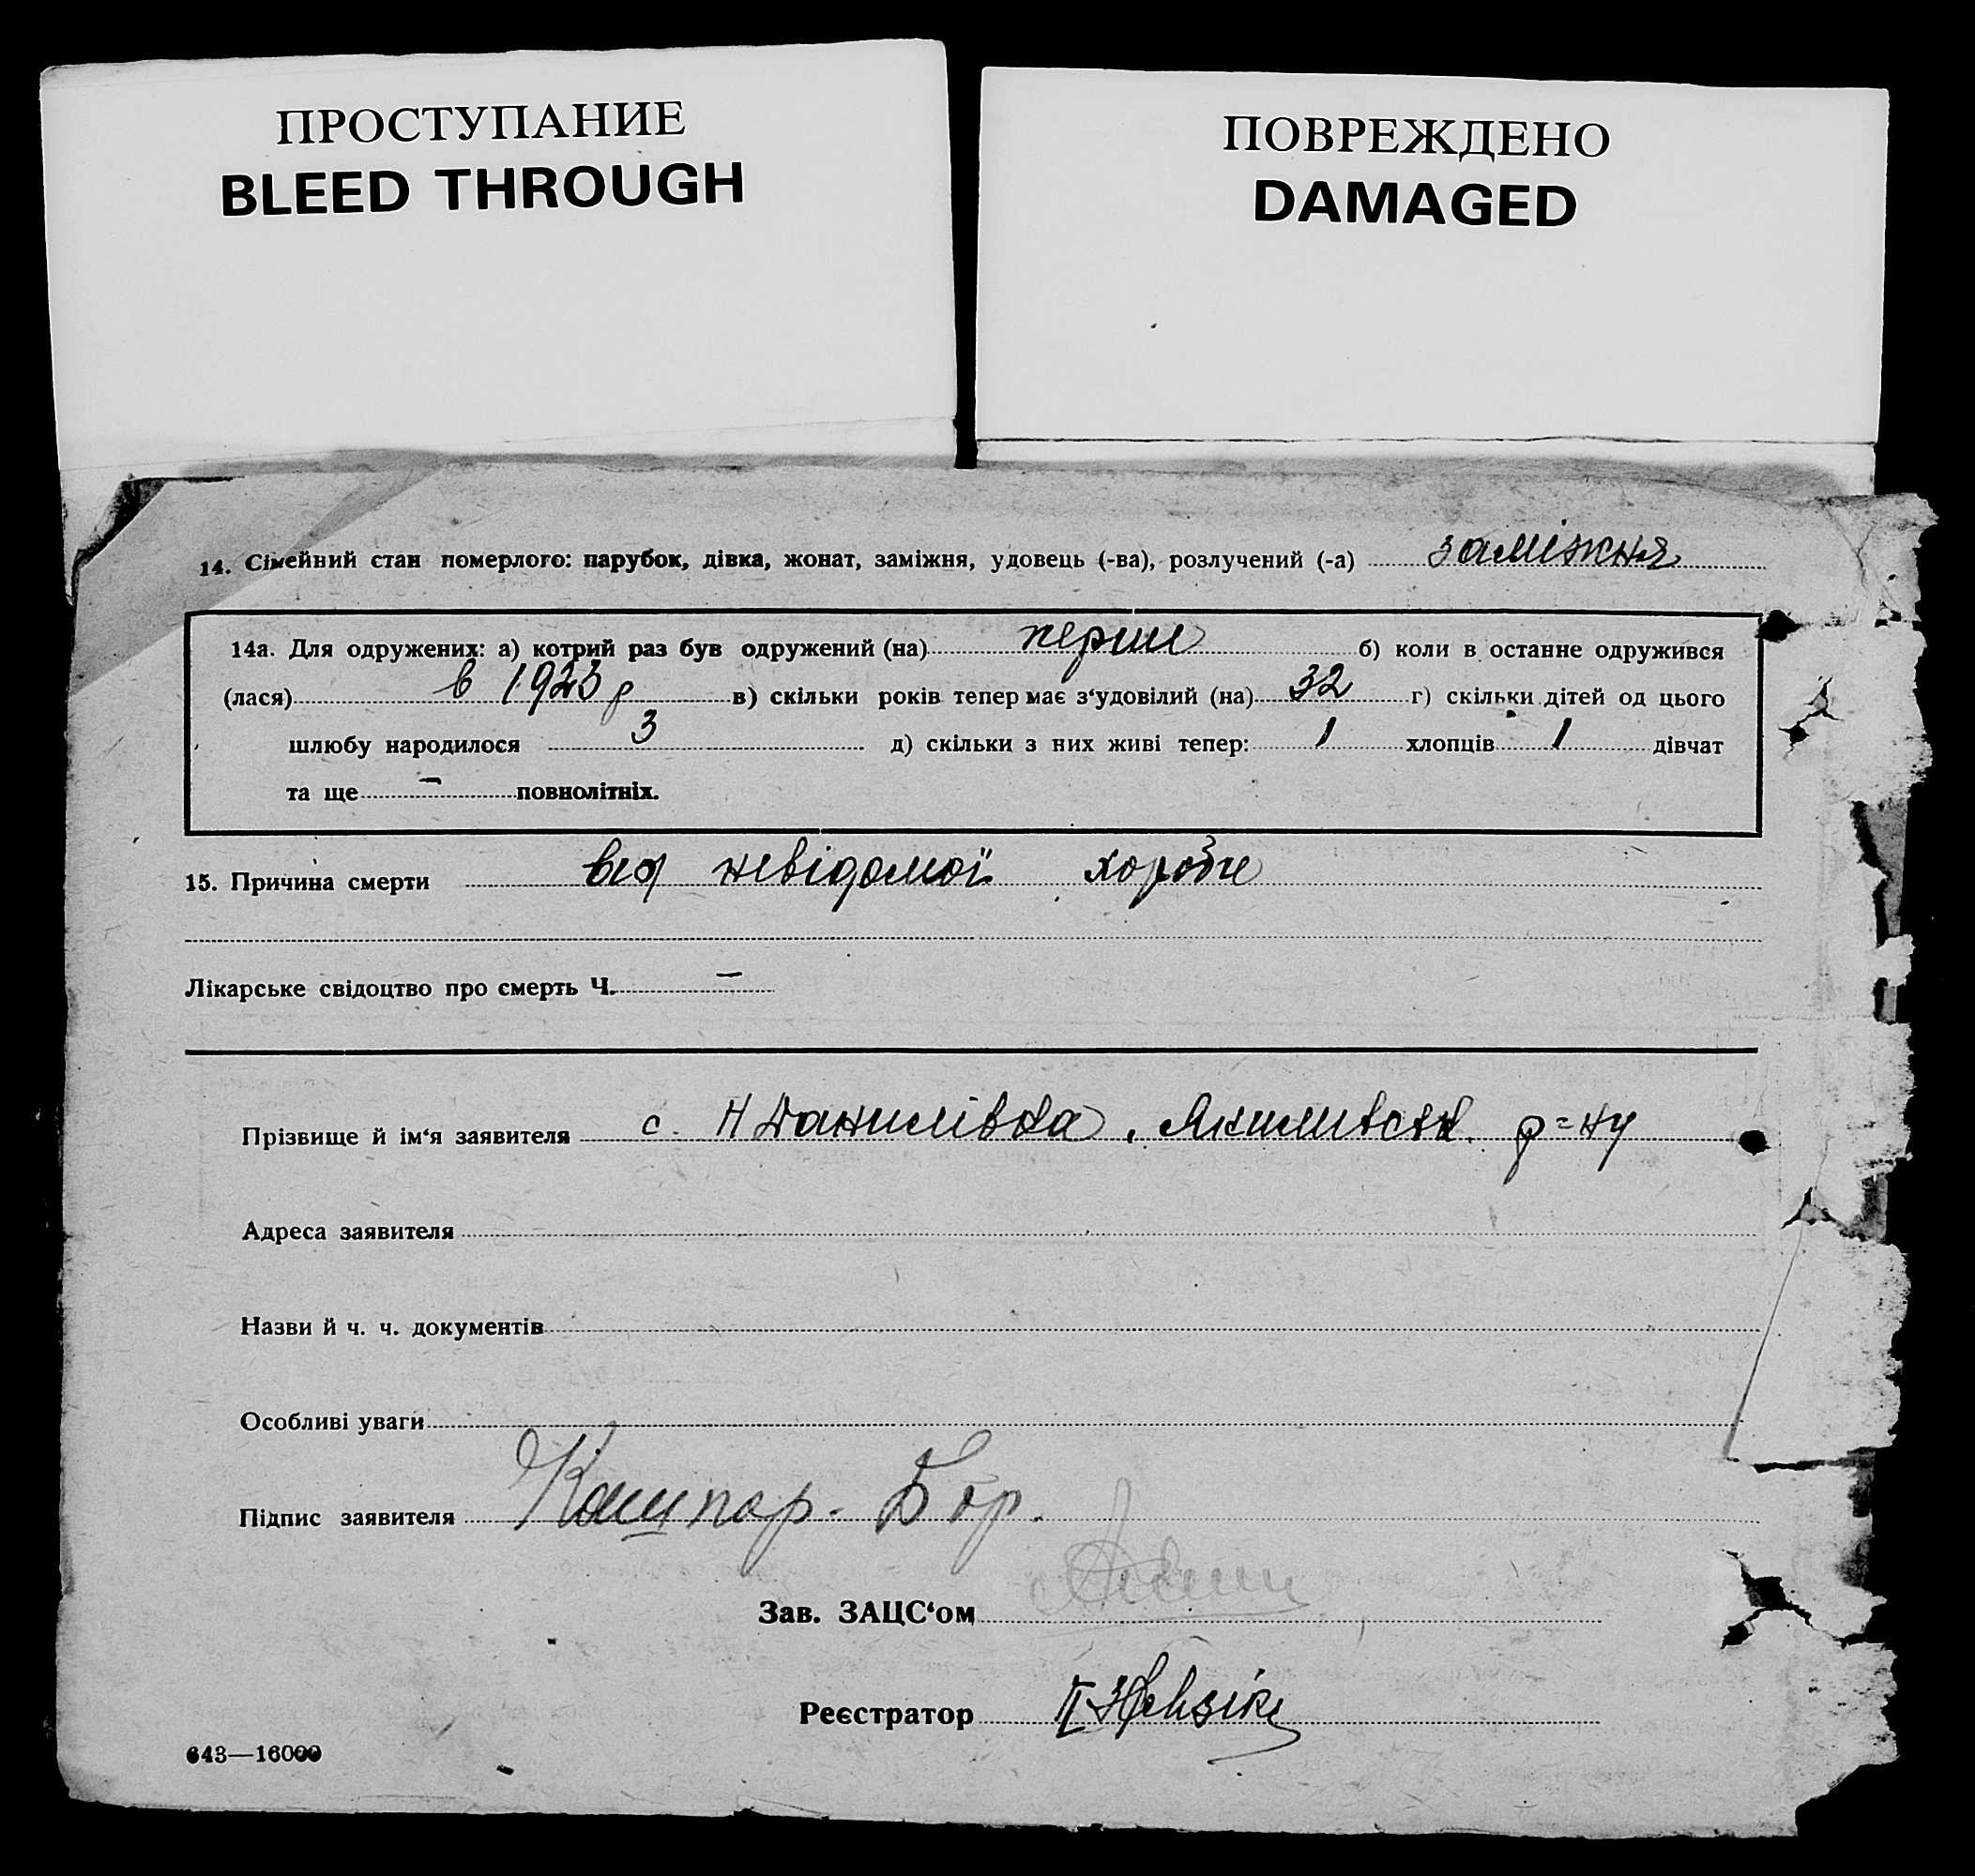 ПРОСТУПАНИЕ
BLEED THROUGH
ПОВРЕЖДЕНО
DAMAGED
14. Сімейний стан померлого: парубок, дівка, жонат, заміжня, удовець (-ва), розлучений (-а) заміжня
14а. Для одружених: а) котрий раз був одружений (на) перши б) коли в останне одружився
(лася) в 1923 р в) скільки років тепер має з‘удовілий (на) 32 г) скільки дітей од цього
шлюбу народилося 3 д) скільки з них живі тепер: 1 хлопців 1 дівчат
та ще – повнолітніх.
15. Причина смерти від невідомої хоробе
Лікарське свідоцтво про смерть Ч. –
Прізвище й ім‘я заявителя с. Н Данилівка, р=ну
Адреса заявителя
Назви й ч. ч. документів
Особливі уваги
Підпис заявителя
Зав. ЗАЦС‘ом
Реєстратор
643—16000